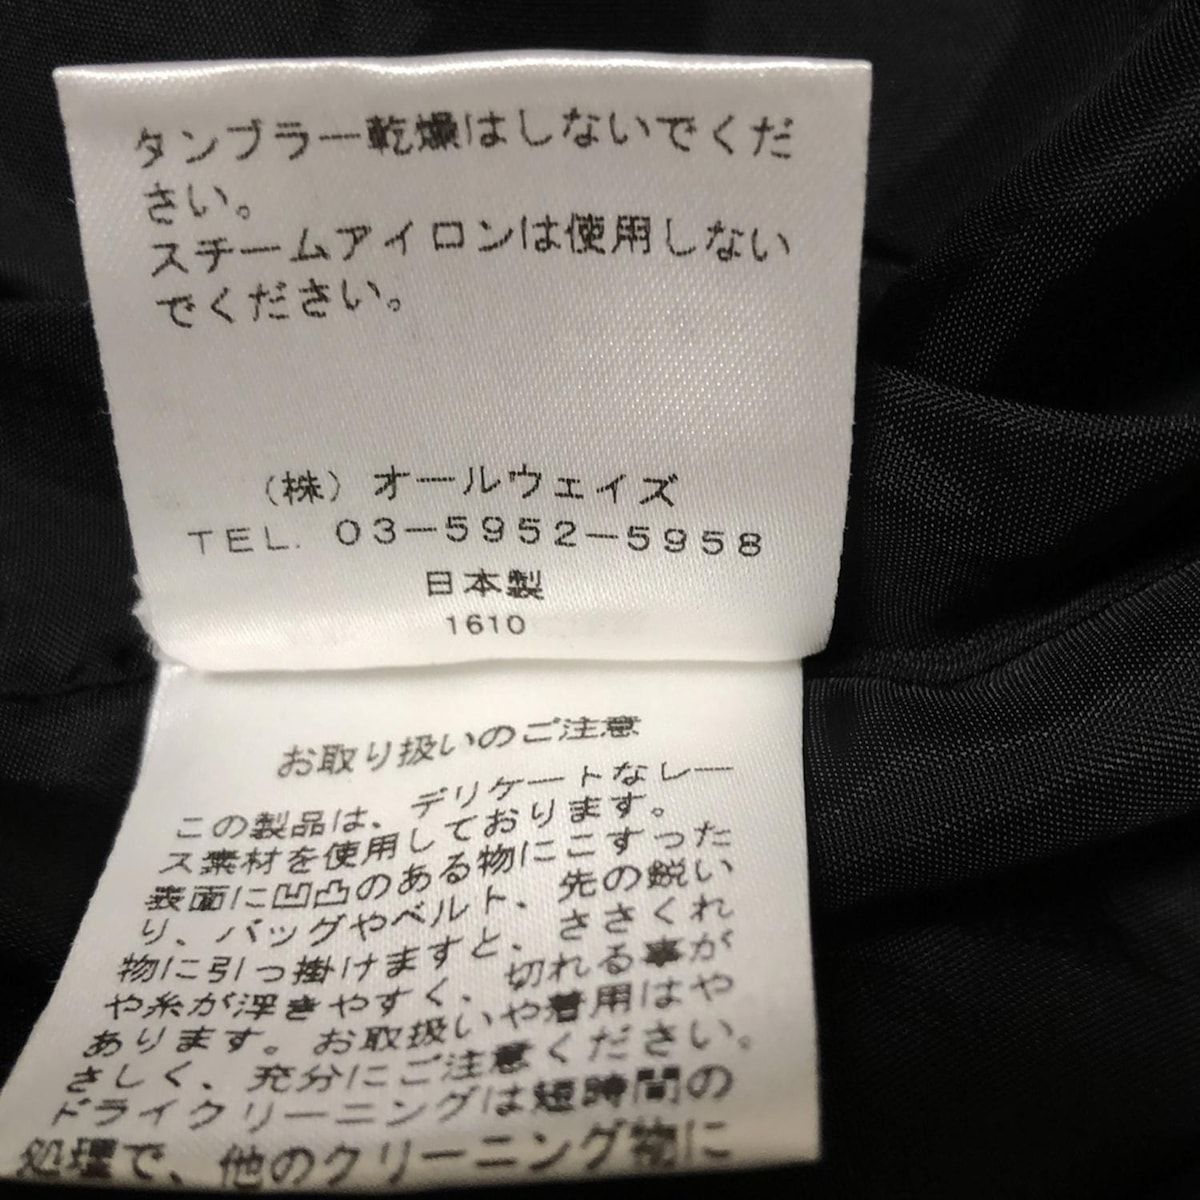 タンブラー乾燥はしないでくだ
さい。
スチームアイロンは使用しない
でください。
(株) オールウェイズ
TEL. 03-5952-5958
日本製
1610
お取り扱いのご注意
この製品は、デリケートなレー
ス素材を使用しております。
表面に凹凸のある物にこすった
り、バッグやベルト、先の鋭い
物に引っ掛けますと、ささくれ
や糸が浮きやすく、切れる事が
あります。お取扱いや着用はや
さしく、充分にご注意ください。
ドライクリーニングは短時間の
処理で、他のクリーニング物に